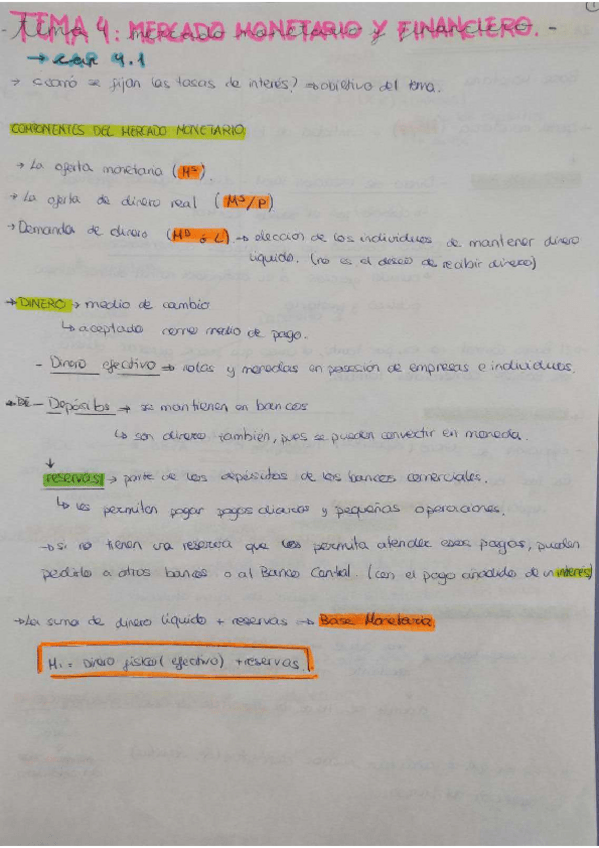 - TEMA 4: MERCADO MONETARIO Y FINANCIERO. -
→ cap 4.1
→ cómo se fijan las tasas de interés? → objetivo del tema.
COMPONENTES DEL MERCADO MONETARIO
→ La oferta monetaria (Mˢ).
→ La oferta de dinero real (Mˢ/P)
→ Demanda de dinero (Mᴰ ó L) → elección de los individuos de mantener dinero
líquido. (no es el deseo de recibir dinero)
→ DINERO → medio de cambio
↳ aceptado como medio de pago.
- Dinero efectivo → notas y monedas en posesión de empresas e individuos.
- Depósitos → se mantienen en bancos
↳ son dinero también, pues se pueden convertir en moneda.
↓
reservas → parte de los depósitos de los bancos comerciales.
↳ les permiten pagar pagos diarios y pequeñas operaciones.
→ si no tienen una reserva que les permita atender esos pagos, pueden
pedirlo a otros bancos o al Banco Central. (con el pago añadido de un interés)
→ La suma de dinero líquido + reservas → Base Monetaria
M₁ = Dinero físico (efectivo) + reservas.